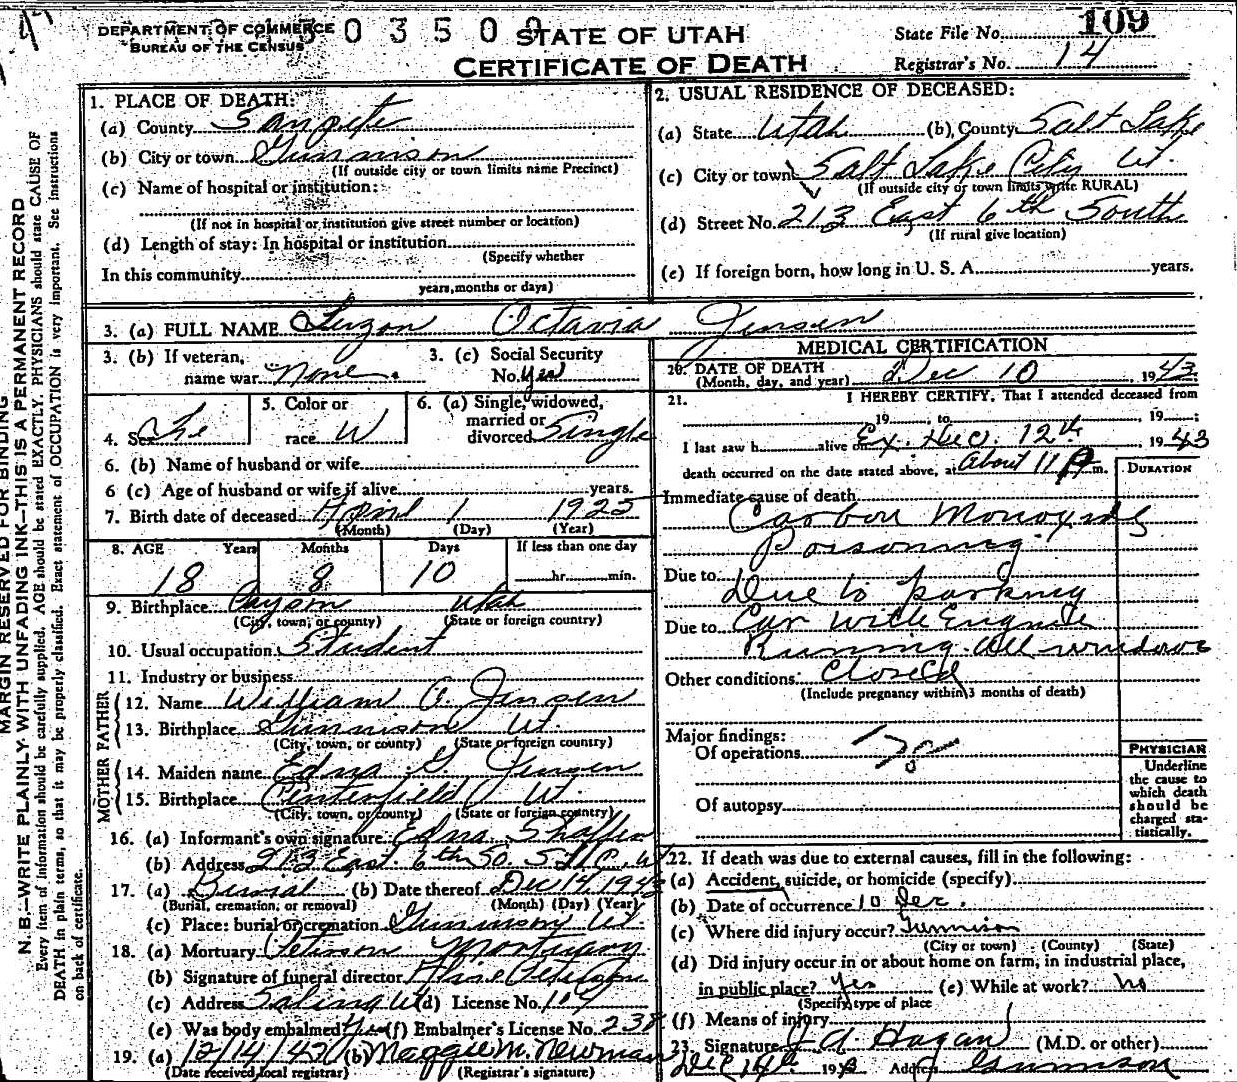 DEPARTMENT OF COMMERCE
BUREAU OF THE CENSUS
0 3 5 0 0
STATE OF UTAH
CERTIFICATE OF DEATH
State File No. 109
Registrar's No. 14
MARGIN RESERVED FOR BINDING
N. B.—WRITE PLAINLY WITH UNFADING INK—THIS IS A PERMANENT RECORD
Every item of information should be carefully supplied. AGE should be stated EXACTLY. PHYSICIANS should state CAUSE OF
DEATH in plain terms, so that it may be properly classified. Exact statement of OCCUPATION is very important. See instructions
on back of certificate.
1. PLACE OF DEATH:
(a) County Sanpete
(b) City or town Gunnison
(If outside city or town limits name Precinct)
(c) Name of hospital or institution:
(If not in hospital or institution give street number or location)
(d) Length of stay: In hospital or institution
(Specify whether
In this community
years, months or days)
2. USUAL RESIDENCE OF DECEASED:
(a) State Utah (b) County Salt Lake
(c) City or town Salt Lake City Ut.
(If outside city or town limits write RURAL)
(d) Street No. 213 East 6th South
(If rural give location)
(e) If foreign born, how long in U. S. A. years.
3. (a) FULL NAME Luzon Octavia Jensen
3. (b) If veteran,
name war None.
3. (c) Social Security
No. yes
4. Sex
5. Color or
race W
6. (a) Single, widowed,
married or
divorced Single
6. (b) Name of husband or wife
6 (c) Age of husband or wife if alive years.
7. Birth date of deceased April 1 1925
(Month) (Day) (Year)
8. AGE Years Months Days If less than one day
18 8 10 hr. min.
9. Birthplace Payson Utah
(City, town, or county) (State or foreign country)
10. Usual occupation Student
11. Industry or business
FATHER
12. Name William O. Jensen
13. Birthplace Gunnison Ut.
(City, town, or county) (State or foreign country)
MOTHER
14. Maiden name Edna G. Jensen
15. Birthplace Centerfield Ut.
(City, town, or county) (State or foreign country)
16. (a) Informant's own signature Edna
(b) Address 213 East 6th So. S.L.C. Ut
17. (a) Burial (b) Date thereof Dec 14 1943
(Burial, cremation, or removal) (Month) (Day) (Year)
(c) Place: burial or cremation Gunnison Ut
18. (a) Mortuary Peterson Mortuary
(b) Signature of funeral director
(c) Address Salina Ut (d) License No. 104
(e) Was body embalmed Yes (f) Embalmer's License No. 238
19. (a) 12/14/43 (b) Maggie M. Newman
(Date received local registrar) (Registrar's signature)
MEDICAL CERTIFICATION
20. DATE OF DEATH
(Month, day, and year) Dec 10, 1943
21. I HEREBY CERTIFY, That I attended deceased from
19 , to , 19 ;
I last saw h alive on Ex. Dec. 12th 1943
death occurred on the date stated above, at About 11 P m.
DURATION
Immediate cause of death
Carbon Monoxide
Poisoning
Due to Due to parking
Due to Car with Engine
Running. All windows
Other conditions Closed
(Include pregnancy within 3 months of death)
Major findings:
Of operations No
Of autopsy
PHYSICIAN
Underline
the cause to
which death
should be
charged sta-
tistically.
22. If death was due to external causes, fill in the following:
(a) Accident, suicide, or homicide (specify)
(b) Date of occurrence 10 Dec.
(c) Where did injury occur? Gunnison
(City or town) (County) (State)
(d) Did injury occur in or about home on farm, in industrial place,
in public place? Yes (e) While at work? No
(Specify type of place
(f) Means of injury
23. Signature Hagan (M.D. or other)
Dec 14th 1943 Address Gunnison